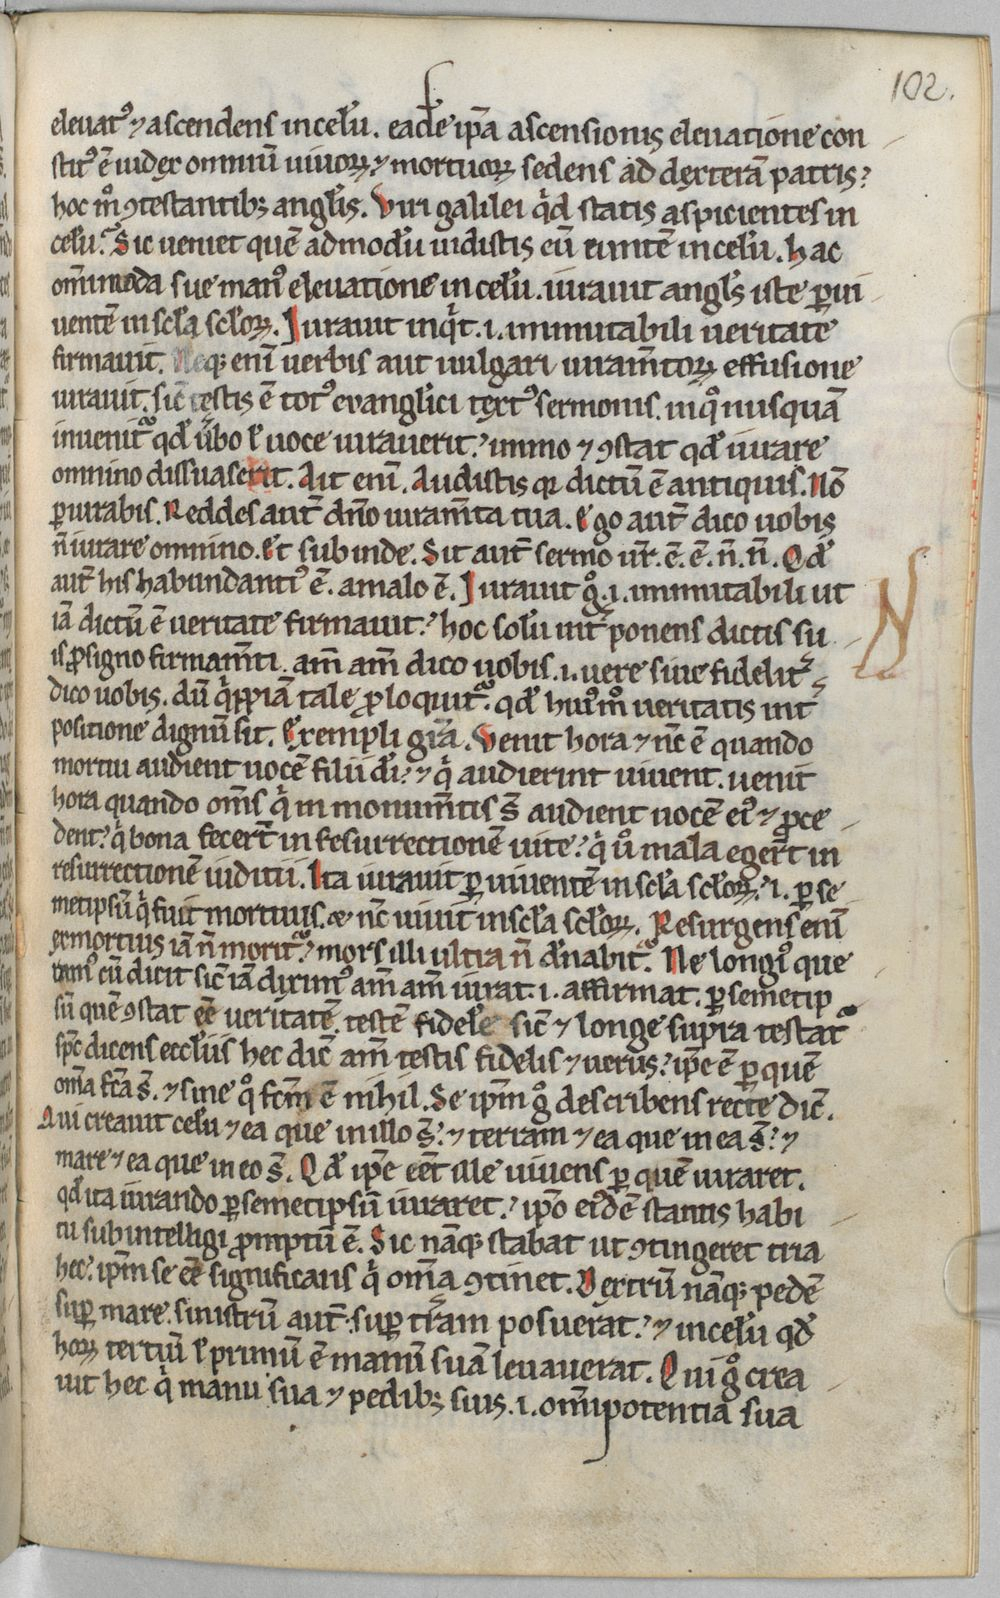 102.
eleuatꝰ ⁊ ascendens in celū. eadē ip̄a ascensionis eleuatione con
stitꝰ ē iudex omniū uiuoꝝ ⁊ mortuoꝝ sedens ad dexterā patris?
hoc m̊ ꝯtestantibꝫ angl̓is. Viri galilei qͥd statis aspicientes in
celū? Sic ueniet quē admodū uidistis eū euntē in celū. hac
om̄imoda sue manꝰ eleuatione in celū. iurauit angl̓s iste ꝑ ui
uentē in scl̓a scl̓oꝝ. Iurauit inqͥt .i. immutabili ueritate
firmauit. Neqꝫ eni᷒ uerbis aut uulgari iuram̄toꝝ effusione
iurauit. sic̄ testis ē totꝰ evanglici textꝰ sermonis. in qͦ nusquā
inuenit᷑ qd̓ u̓bo l̓ uoce iurauerit? immo ⁊ ꝯstat qd̓ iurare
omnino dissuaserit. Ait eni᷒. Audistis qꝛ dictū ē antiquis. Nō
ꝑiurabis. Reddes aut̄ dn̄o iuram̄ta tua. Ego aut̄ dico uobis
n̄ iurare omnino. Et subinde. Sit aut̄ sermo ur̄. ē. ē. n̄. n̄. Qd̓
aut̄ his habundantiꝰ ē. a malo ē. Iurauit gͦ .i. immutabili ut
iā dictū ē ueritate firmauit? hoc solū int̓ ponens dictis su
is ꝓ signo firmam̄ti. am̄ am̄ dico uobis .i. uere siue fidelit̓
dico uobis. dū qͥppiā tale ꝓloquit᷑. qd̓ huiꝰm̊ ueritatis int̓
positione dignū sit. Exempli gr̄a. Venit hora ⁊ nc̄ ē quando
mortui audient uocē filii di᷒? ⁊ qͥ audierint uiuent. uenit
hora quando om̄s qͥ in monum̄tis s̄ audient uocē eiꝰ ⁊ ꝓce
dent? qͥ bona fecer̄t in resurrectionē uite? qͥ uͦ mala eger̄t in
resurrectionē iuditii. Ita iurauit ꝑ uiuentē in scl̓a scl̓oꝝ? .i. ꝑ se
metipsū qͥ fuit mortuus. & nc̄ uiuit in scl̓a scl̓oꝝ. Resurgens eni᷒
ex mortuis iā n̄ morit᷑? mors illi ultra n̄ dn̄abit᷑. Ne longiꝰ que
ramꝰ cū dicit sic̄ iā diximꝰ am̄ am̄ iurat .i. affirmat. ꝑ semetip
sū quē ꝯstat eē ueritatē. testē fidelē sic̄ ⁊ longe supra testat᷑
spc̄ dicens eccl̓iis hec dic̄ am̄ testis fidelis ⁊ uerus? ip̄e ē ꝑ quē
om̄a fc̄a s̄. ⁊ sine qͦ fc̄m ē nihil. Se ip̄m gͦ describens recte dic̄.
Qui creauit celū ⁊ ea que in illo s̄? ⁊ terram ⁊ ea que in ea s̄? ⁊
mare ⁊ ea que in eo s̄. Qd̓ ip̄e eēt ille uiuens ꝑ quē iuraret.
qd̓ ita iurando ꝑ semetipsū iuraret? ip̄o eiꝰdē stantis habi
tu subintelligi ꝓmptū ē. Sic nāqꝫ stabat ut ꝯtingeret tria
hec? ip̄m se eē significans qͥ om̄a ꝯtinet. Dextrū nāqꝫ pedē
suꝑ mare. sinistrū aut̄ suꝑ tr̄am posuerat? ⁊ in celū qd̓
hoꝝ tertiū l̓ primū ē manū suā leuauerat. Qui gͦ crea
uit hec qͥ manu sua ⁊ pedibꝫ suis .i. om̄ipotentia sua
N